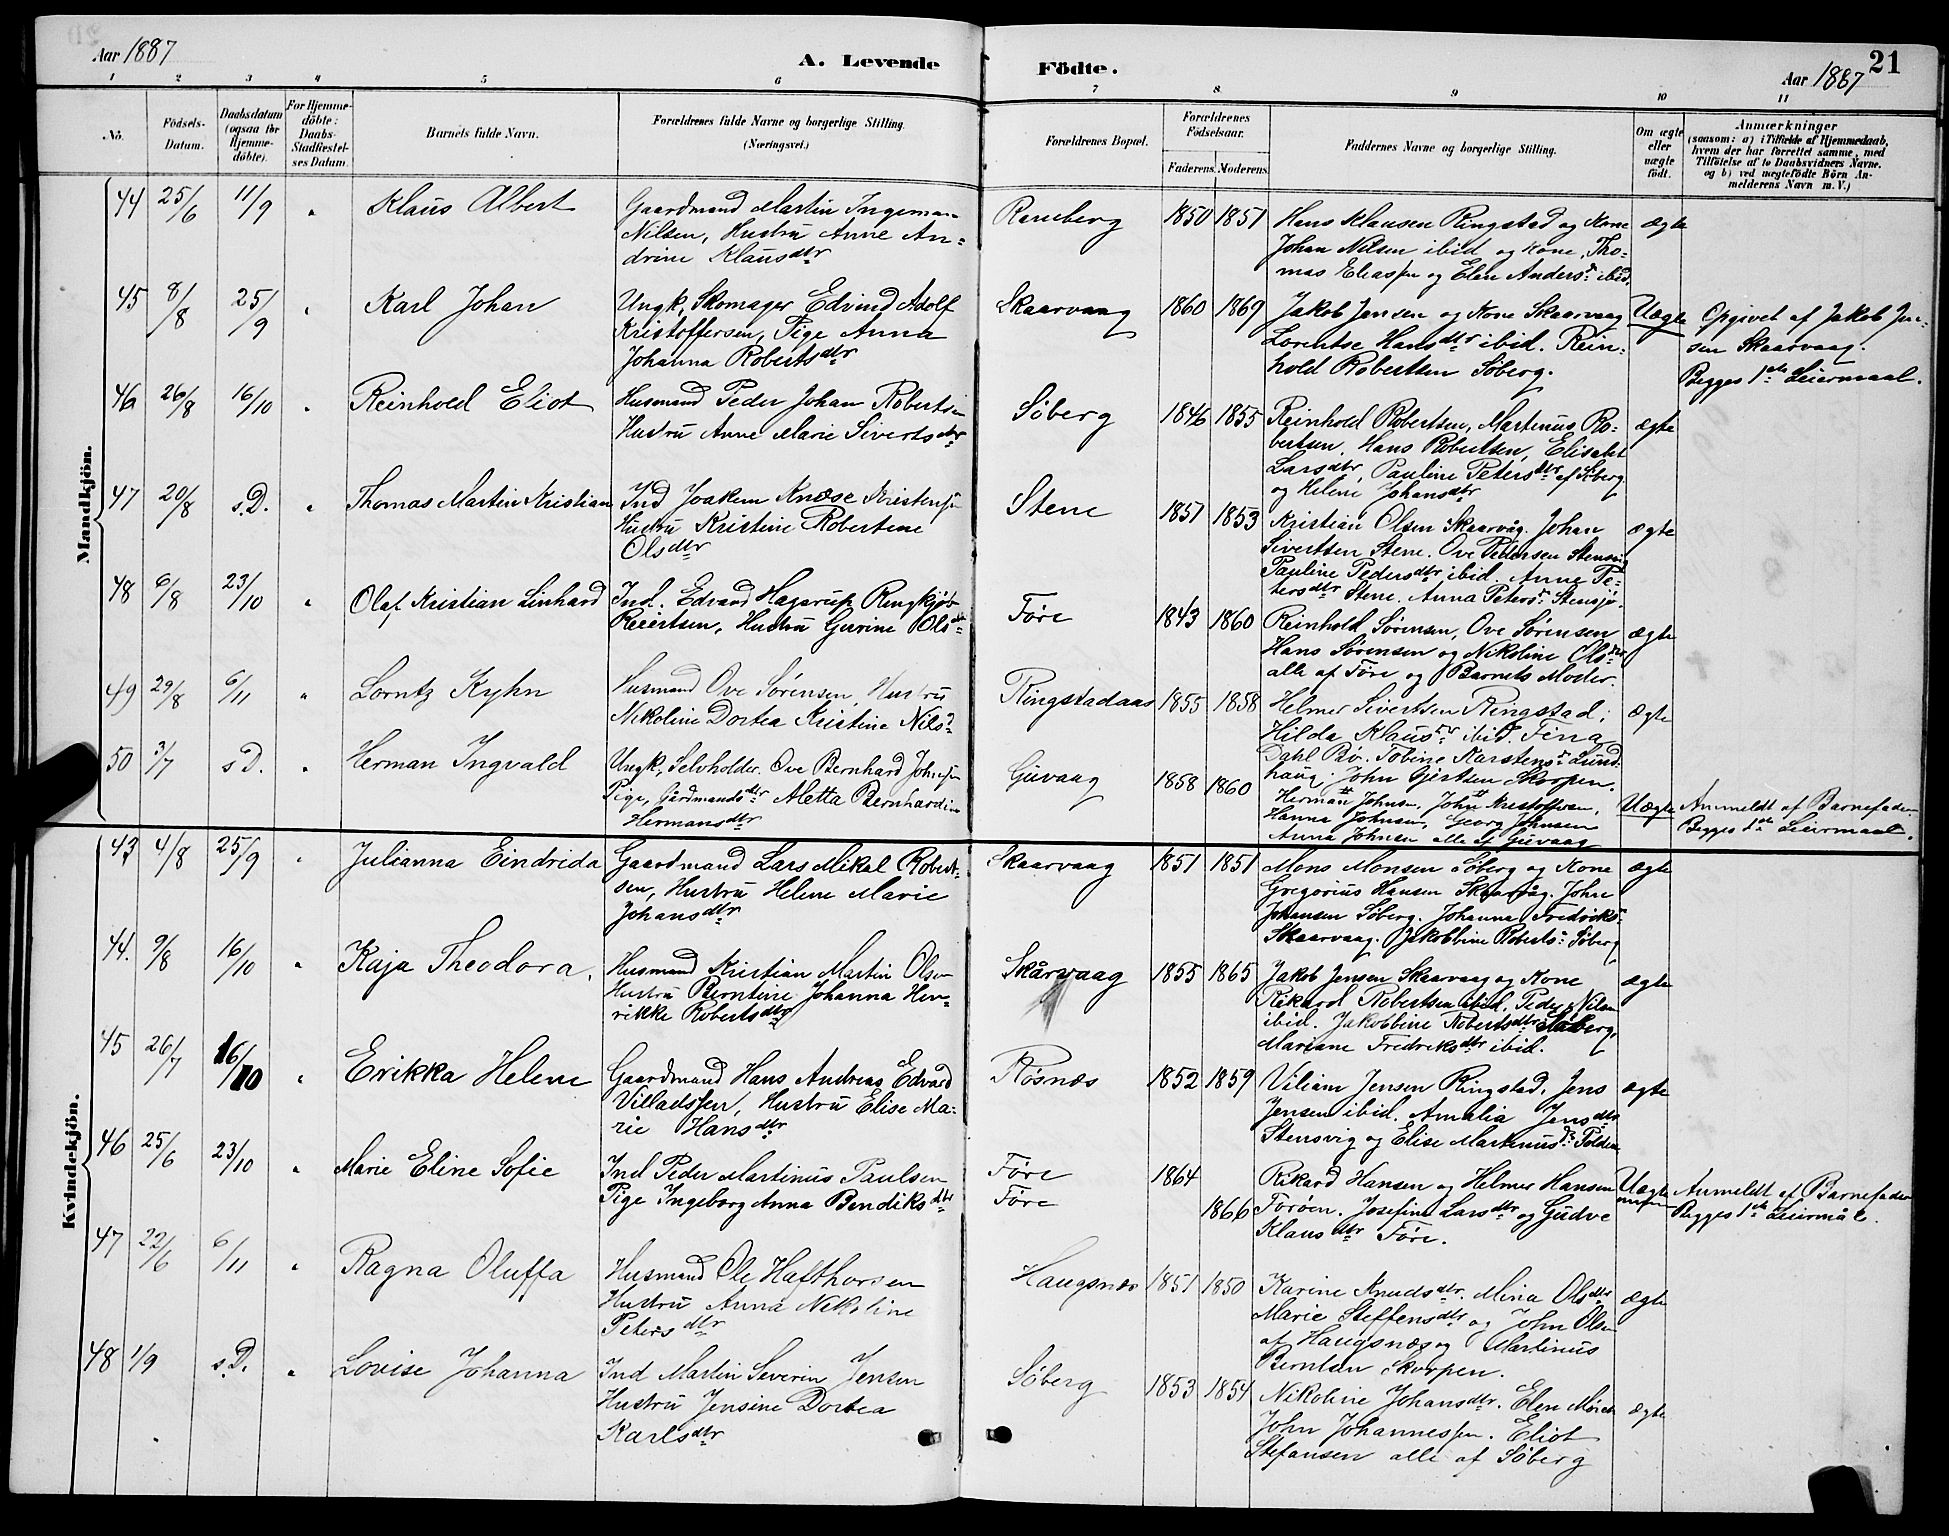 Aar 1887
A. Levende
Födte.
Aar 1887
21
1 2 3 4 5 6 7 8 9 10 11
No.
Födsels-Datum.
Daabsdatum (ogsaa for Hjemme-döbte).
For Hjemme-döbte: Daabs-Stadfæstel-ses Datum.
Barnets fulde Navn.
Forældrenes fulde Navne og borgerlige Stilling.
(Næringsvei.)
Forældrenes Bopæl.
Forældrenes Födselsaar.
Faderens. Moderens.
Faddernes Navne og borgerlige Stilling.
Om ægte eller uægte födt.
Anmærkninger
(saasom: a) i Tilfælde af Hjemmedaab,
hvem der har forrettet samme, med
Tilföielse af to Daabsvidners Navne,
og b) ved uægtefödte Börn An-
melderens Navn m. V.)
Mandkjön.
44 25/6 11/9 " Klaus Albert
Gaardmand Martin Ingeman
Nilsen, Hustru Anne An=
drine Klausdtr
Ramberg 1850 1851
Hans Klausen Ringstad og Kone
Johan Nilsen ibid og Kone, Tho-
mas Eliassen og Elen Anders ibid.
ægte
45 8/8 25/9 " Karl Johan
Ungk. Skomager Edvind Adolf
Kristoffersen, Pige Anna
Johanna Robertsdtr
Skaarvaag 1860 1869
Jakob Jensen og Kone Skaarvaag
Lorentse Hansdtr ibid. Rein-
hold Robertsen Söberg.
Uægte
Opgivet af Jakob Jen-
sen Skaarvaag.
Begges 1ste Leiermaal.
46 26/8 16/10 " Reinhold Eliot
Husmand Peder Johan Robertsen
Hustru Anne Marie Sivertsdtr
Söberg 1846 1855
Reinhold Robertsen, Martinus Ro-
bertsen, Hans Robertsen, Elisabet
Larsdtr, Pauline Petersdtr af Söberg
og Helene Johansdtr
ægte
47 20/8 s.D. " Thomas Martin Kristian
Ind Joakem Knøse Kristensen
Hustru Kristine Robertine
Olsdtr
Stene 1851 1853
Kristian Olsen Skaarvåg. Johan
Sivertsen Stene. Ove Pedersen Stensvig
Pauline Pedersdtr ibid. Anne Pe-
tersdtr Stene. Anna Peters
ægte
48 6/8 23/10 " Olaf Kristian Linhard
Ind. Edvard Hagerup Ringkjöb
Reiertsen, Hustru Gurine Olsdtr
Före 1843 1860
Reinhold Sörensen, Ove Sörensen
Hans Sörensen og Nikoline Olsdtr
alle af Före og Barnets Moder.
ægte
49 29/8 6/11 " Lorntz Kyhn
Husmand Ove Sörensen, Hustru
Nikoline Dortea Kristine Nilsd
Ringstadaas 1855 1858
Helmer Sivertsen Ringstad;
Hilda Klausdtr ibid. Fina
Dahl Bö. Tobine Karstens Lund
haug. John Gjertsen Skorpen.
ægte
50 3/7 s.D. " Herman Ingvald
Ungk. Selvholder. Ove Bernhard Johnsen
Pige, Gårdmandsdtr Aletta Bernhardine
Hermansdtr
Guvaag 1858 1860
Herman Johnsen, John Kristoffersen,
Hanna Johnsen, Georg Johnsen
Anna Johnsen alle af Guvaag
Uægte
Anmeldt af Barnefader
Begges 1ste Leiermaal.
Kvindekjön.
43 4/8 25/9 " Julianna Eindrida
Gaardmand Lars Mikal Robert-
sen, Hustru Helene Marie
Johansdtr
Skaarvaag 1851 1851
Mons Monsen Söberg og Kone
Gregorius Hansen Skaarvåg. John
Johansen Söberg. Johanna Fredriks
Skaarvaag. Jakobbine Roberts Söberg
ægte
44. 9/8 16/10 " Kaja Theodora,
Husmand Kristian Martin Olsen
Hustru Berntine Johanna Hen-
rikke Robertsdtr
Skårvaag 1855 1865
Jakob Jensen Skaarvaag og Kone
Rikard Robertsen ibid, Peder Nilsen
ibid. Jakobbine Robertsdtr Söberg,
Mariane Fredriksdtr ibid.
ægte
45 26/7 16/10 " Erikka Helene
Gaardmand Hans Andreas Edvard
Villadssen, Hustru Elise Ma-
rie Hansdtr
Røsnæs 1852 1859
Viliam Jensen Ringstad, Jens
Jensen ibid. Amalia Jensdtr
Stensvig og Elise Markusd
ægte
46 25/6 23/10 " Marie Eline Sofie
Ind Peder Martinus Paulsen
Pige Ingeborg Anna Bendiksdtr
Före 1864
Före 1866
Rikard Hansen og Helmer Hansen
Foröen. Josefine Larsdtr og Gudve
Klausdtr Före.
Uægte
Anmeldt af Barnefader
Begges 1ste Leiermål.
47 22/6 6/11 " Ragna Oluffa
Husmand Ole Hafthorsen
Hustru Anna Nikoline
Petersdtr
Haugsnæs 1851 1850
Karine Knudsdtr. Mina Olsdtr
Marie Steffensdtr og John Olsen
af Haugsnæs og Martinus
Berntsen Skorpen.
ægte
48 1/9 s.D. " Lovise Johanna
Ind Martin Severin Jensen
Hustru Jensine Dortea
Karlsdtr
Söberg 1853 1854
Nikoline Johansdtr. Elen
John Johannessen. Eliot
Stefansen alle af Söberg
ægte